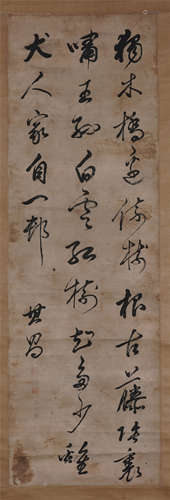 獨木橋邊倚樹根古藤陰裏
嘯王孫白雲紅樹知多少雞
犬人家自一邨
其昌